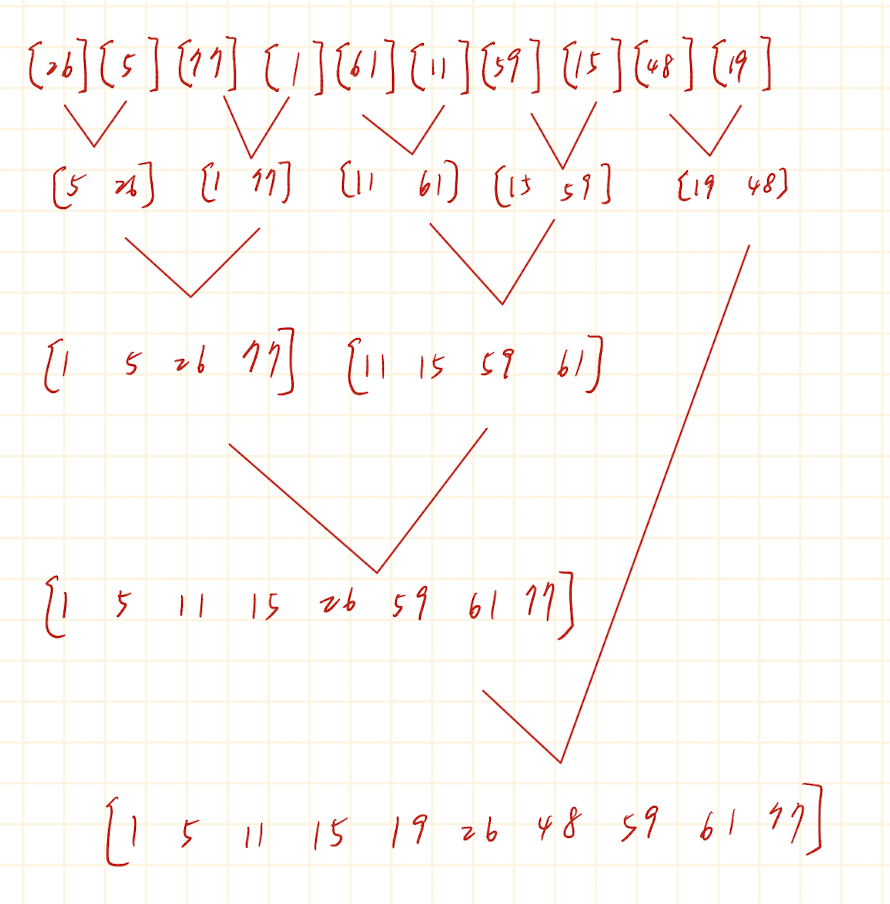 [26] [5] [77] [1] [61] [11] [59] [15] [48] [19]
[5 26] [1 77] [11 61] [15 59] [19 48]
[1 5 26 77] [11 15 59 61]
[1 5 11 15 26 59 61 77]
[1 5 11 15 19 26 48 59 61 77]